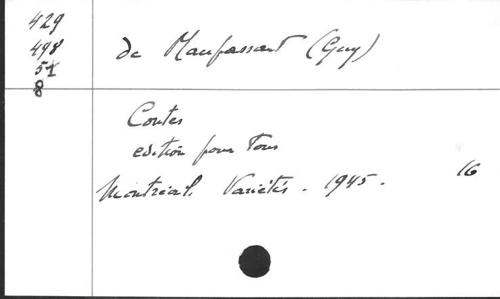 429
498
51
8
de Maupassant (Guy)
Contes
edition pour Tous
Montréal. Variétés. 1945. 16